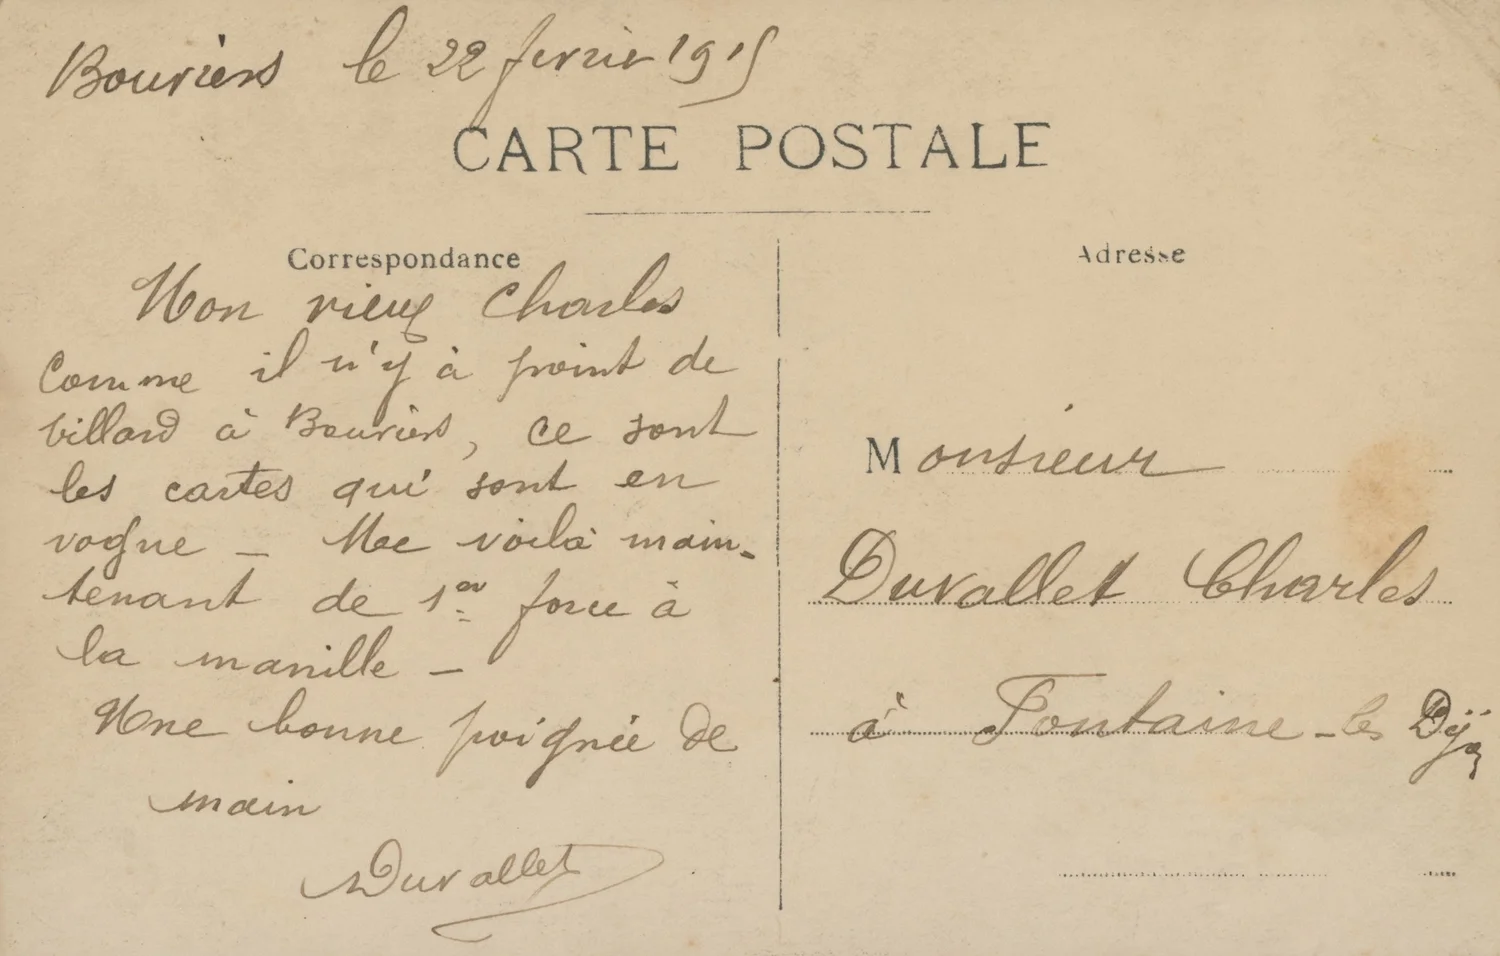 Bouriers le 22 fevrier 1915
CARTE POSTALE
Correspondance
Mon vieux Charles
Comme il n'y à point de
billard à Bouriers, ce sont
les cartes qui sont en
vogue _ Me voilà main-
tenant de 1er force à
la manille -
Une bonne poignée de
main
Duvallet
Adresse
Monsieur
Duvallet Charles
à Fontaine-les Dijon